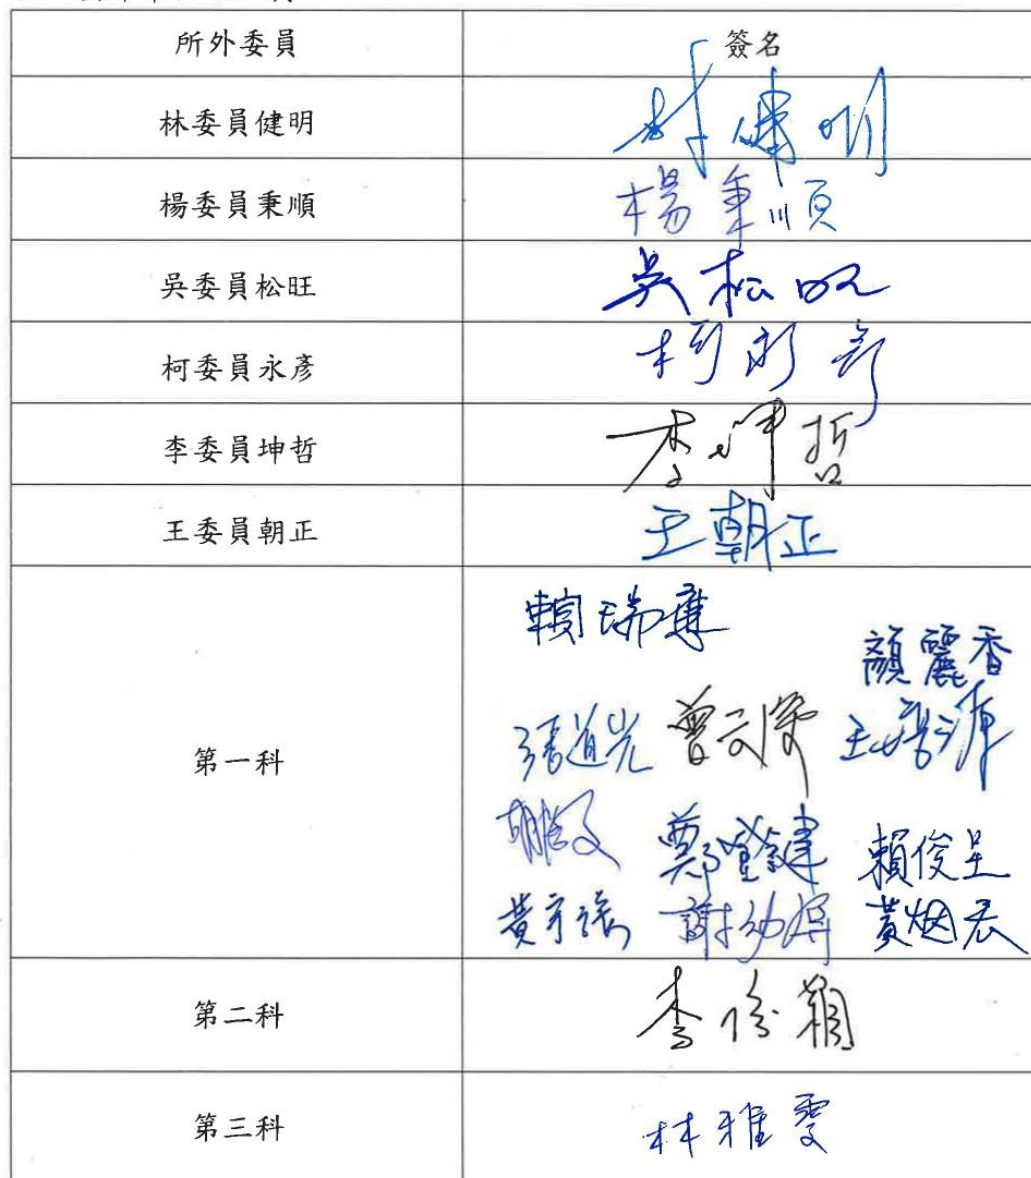 所外委員 簽名
林委員健明 林健明
楊委員秉順 楊秉順
吳委員松旺 吳松旺
柯委員永彥 柯永彥
李委員坤哲 李坤哲
王委員朝正 王朝正
賴瑞
顏麗香
第一科
張道光 曾
王
胡 鄭 賴俊呈
黃 謝幼 黃烟
第二科 李俊穎
第三科 林雅雯